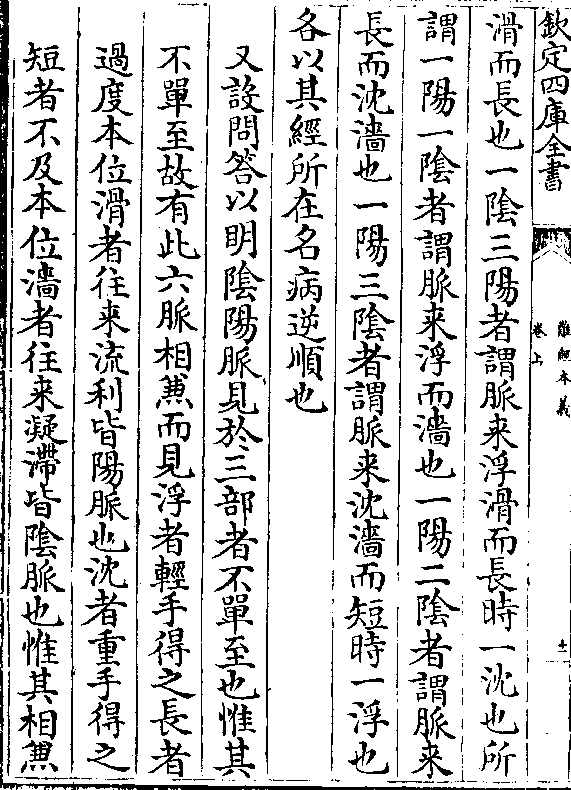 欽定四庫全書
難經本義
卷上
十一
滑而長也一陰三陽者謂脈来浮滑而長時一沈也所
謂一陽一陰者謂脈来浮而濇也一陽二陰者謂脈来
長而沈濇也一陽三陰者謂脈来沈濇而短時一浮也
各以其經所在名病逆順也
又設問答以明陰陽脈見於三部者不單至也惟其
不單至故有此六脈相蒹而見浮者輕手得之長者
過度本位滑者往来流利皆陽脈也沈者重手得之
短者不及本位濇者往来凝滯皆陰脈也惟其相蒹